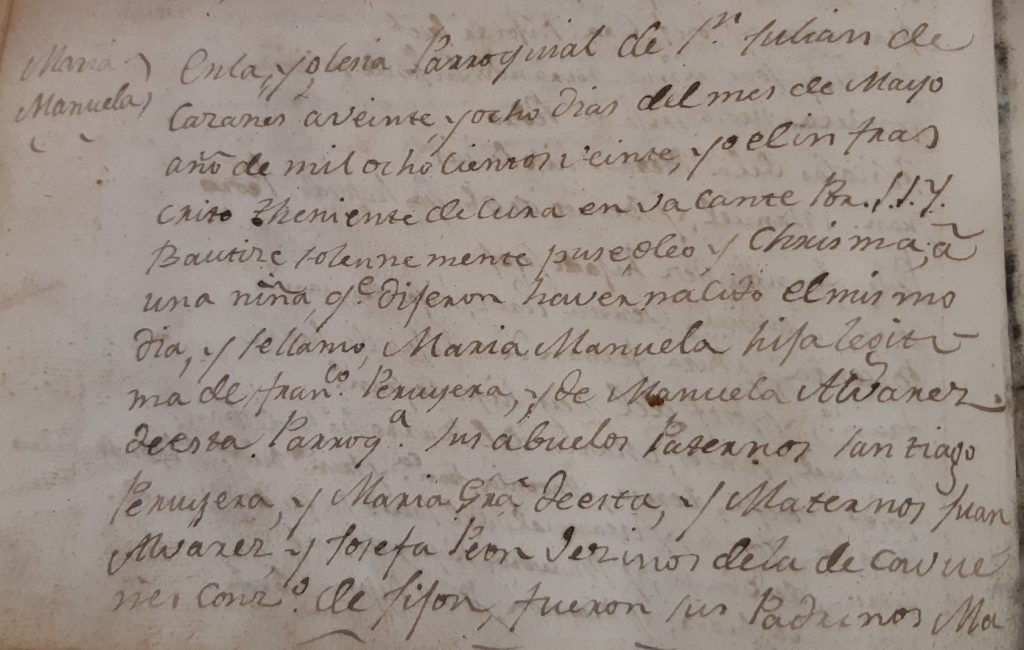 Maria
Manuela
En la Yglesia Parroquial de Sn Julian de
Cazanes a veinte y ocho dias del mes de Mayo
año de mil ocho cientos veinte, yo el infras
crito Theniente de Cura en vacante Por S.S.Y.
Bautize solennemente puse oleo, y Chrisma, a
una niña qe dijeron haver nacido el mismo
dia, y se llamo, Maria Manuela hija legiti
ma de Franco Peruyera, y de Manuela Alvarez
de esta Parroqa sus abuelos Paternos Santiago
Peruyera, y Maria Gra de esta, y Maternos Juan
Alvarez, y Josefa Peon Vezinos de la de Cavue
nes Conzo de Jijon, fueron sus Padrinos Ma